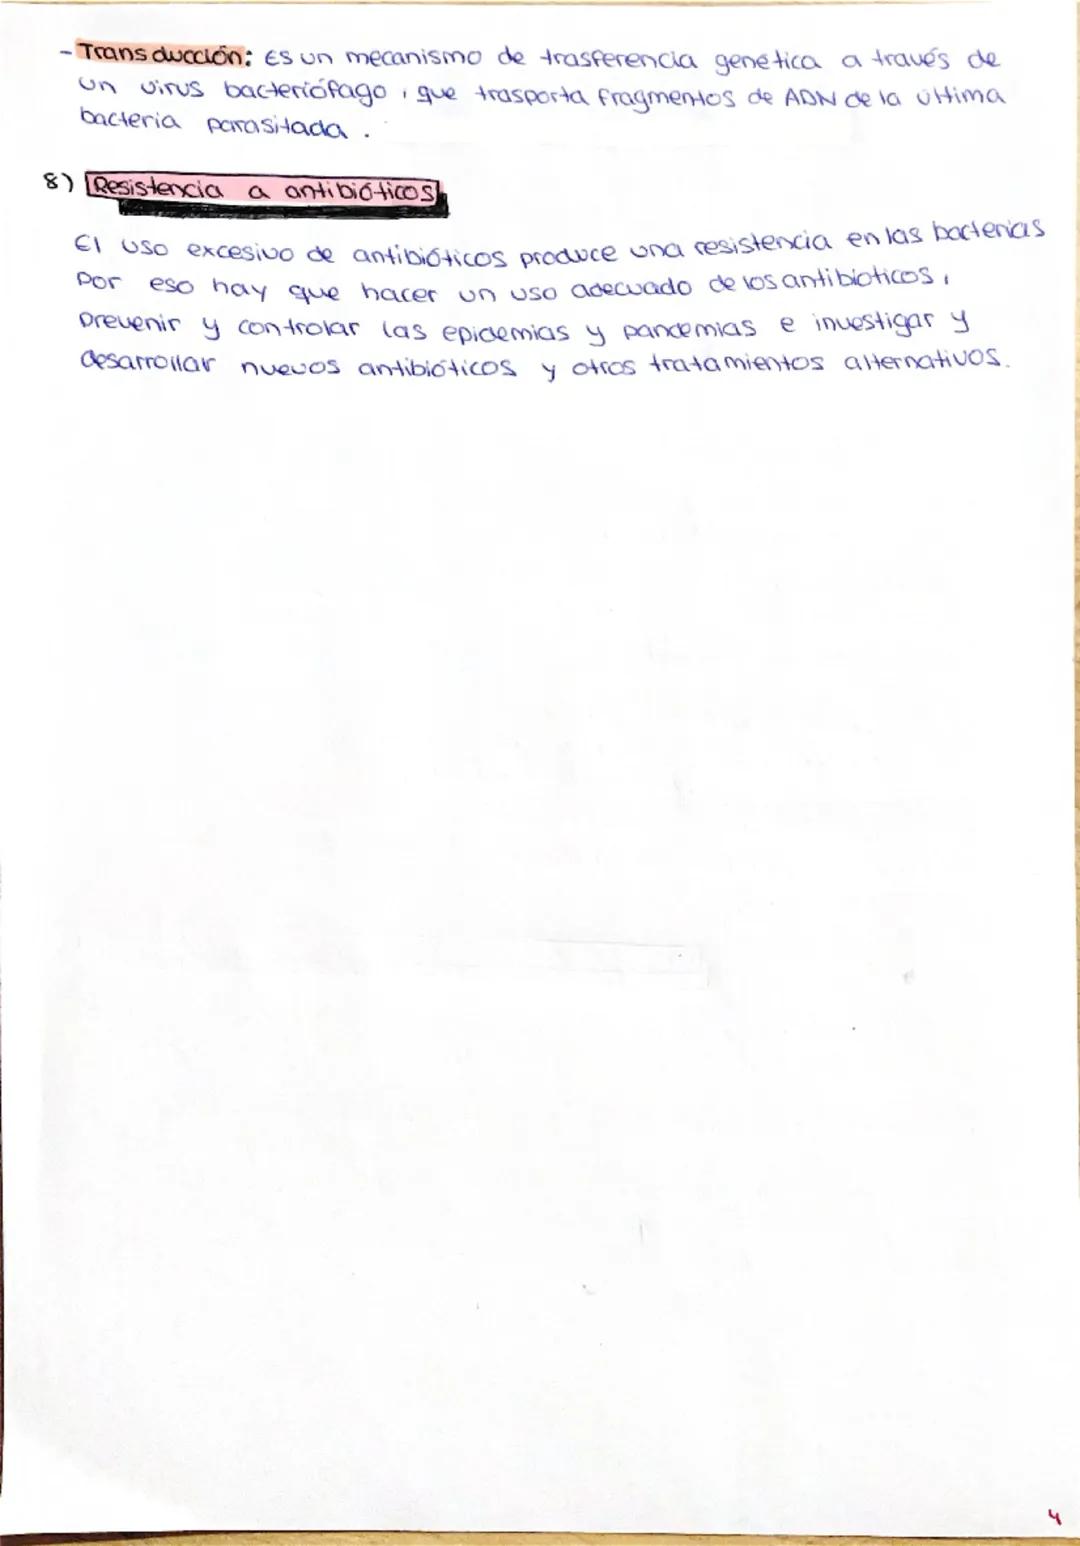 - Transducción: Es un mecanismo de trasferencia genética a través de
un virus bacteriófago, que trasporta fragmentos de ADN de la última
bacteria parasitada.
8) Resistencia a antibióticos
El uso excesivo de antibióticos produce una resistencia en las bacterias
Por eso hay que hacer un uso adecuado de los antibioticos,
prevenir y controlar las epidemias y pandemias e investigar y
desarrollar nuevos antibióticos y otros tratamientos alternativos.
4